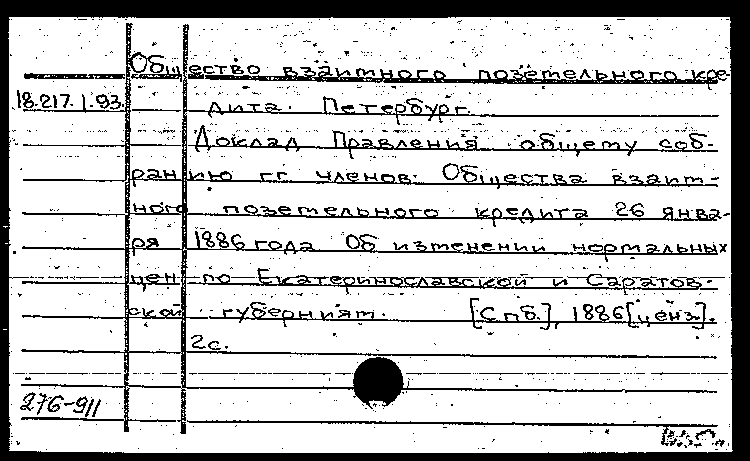 Общество взаимного поземельного кре-
18.217.1.93. дита. Петербург.
Доклад Правления общему соб-
ранию гг. членов Общества взаим-
ного поземельного кредита 26 янва-
ря 1886 года Об изменении нормальных
цен по Екатеринославской и Саратов-
ской губерниям. [Спб.], 1886 [ценз].
2с.
276-911